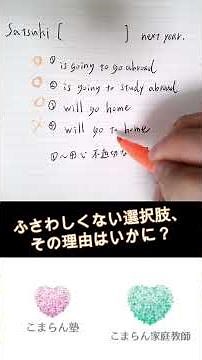 Satsuki [ ] next year.
○ ① is going to go abroad
○ ② is going to study abroad
○ ③ will go home
× ④ will go to home
①〜④で不適切な
ふさわしくない選択肢、
その理由はいかに？
こまらん塾
こまらん家庭教師